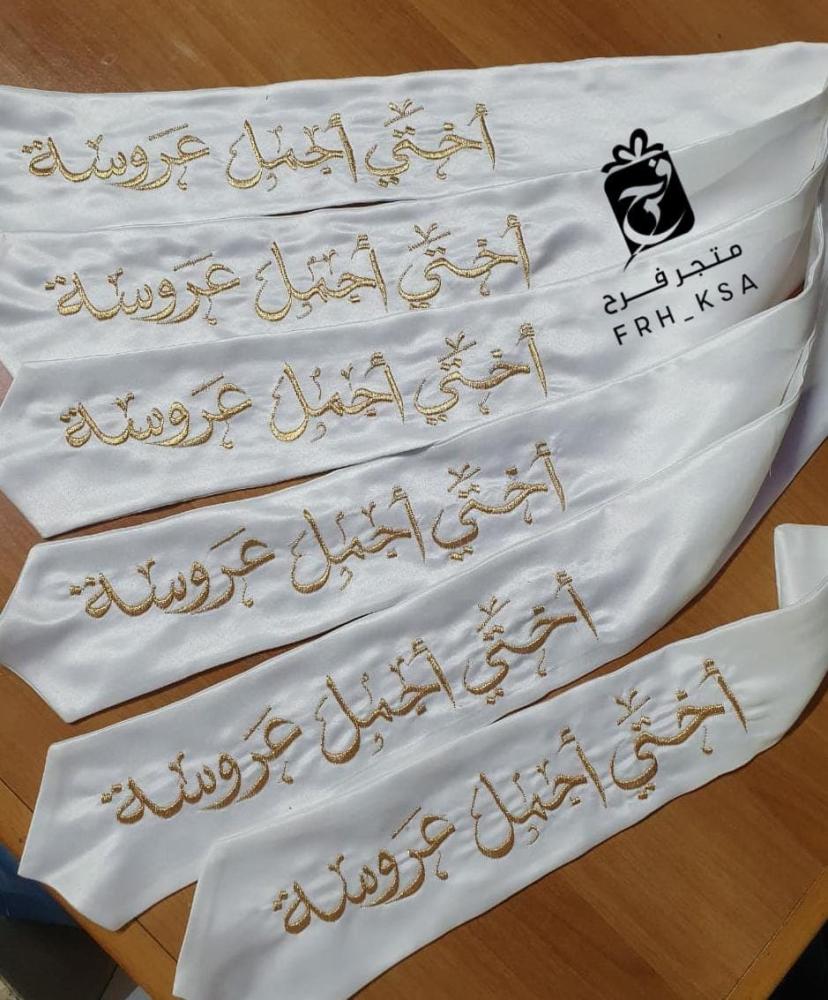 أختي أجمل عروسة
فرح
متجر فرح
FRH_KSA
أختي أجمل عروسة
أختي أجمل عروسة
أختي أجمل عروسة
أختي أجمل عروسة
أختي أجمل عروسة